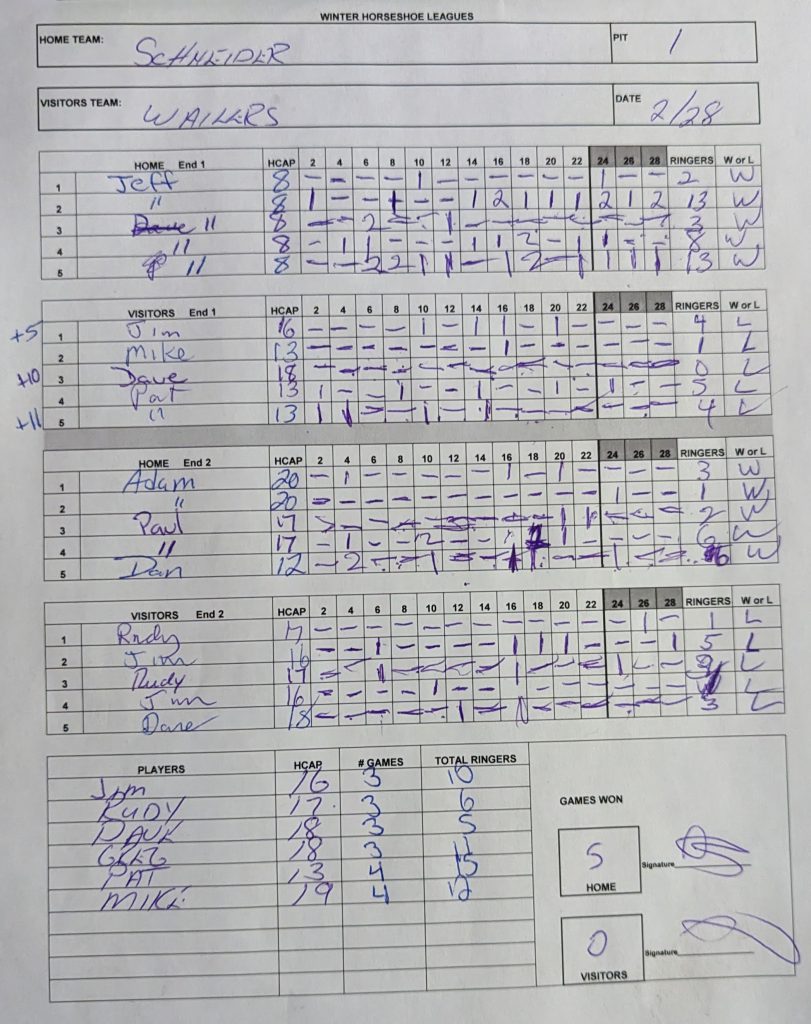 WINTER HORSESHOE LEAGUES
HOME TEAM: SCHNEIDER PIT 1
VISITORS TEAM: WAILERS DATE 2/28
HOME End 1 HCAP 2 4 6 8 10 12 14 16 18 20 22 24 26 28 RINGERS W or L
1 Jeff 8 - - - - 1 - - - - - - 1 - - 2 W
2 " 8 1 - - 1 - - 1 2 1 1 1 2 1 2 13 W
3 " 8 - - 2 - - 1 - - - - - - - - 3 W
4 " 8 - 1 1 - - - 1 1 2 - 1 1 - - 8 W
5 " 8 - - 2 2 1 1 - 1 2 - 1 1 1 1 13 W
VISITORS End 1 HCAP 2 4 6 8 10 12 14 16 18 20 22 24 26 28 RINGERS W or L
+5 1 Jim 16 - - - - 1 - 1 1 - 1 - - - - 4 L
2 Mike 13 - - - - - - - 1 - - - - - - 1 L
+10 3 Dave 18 - - - - - - - - - - - - - - 0 L
4 Pat 13 1 - - 1 - - 1 - - 1 - 1 - - 5 L
+11 5 " 13 1 1 - - 1 - 1 - - - - - - - 4 L
HOME End 2 HCAP 2 4 6 8 10 12 14 16 18 20 22 24 26 28 RINGERS W or L
1 Adam 20 - 1 - - - - - 1 - 1 - - - - 3 W
2 " 20 - - - - - - - - - - - 1 - - 1 W
3 Paul 17 - - - - - - - - - 1 1 - - - 2 W
4 " 17 - 1 - - 2 - - 1 1 - - - 6 W
5 Dan 12 - 2 - - 1 - - 1 1 - - 1 - - 6 W
VISITORS End 2 HCAP 2 4 6 8 10 12 14 16 18 20 22 24 26 28 RINGERS W or L
1 Rudy 17 - - - - - - - - - - - - 1 - 1 L
2 Jim 16 - - 1 - - - - 1 1 1 - - - 1 5 L
3 Rudy 17 - - 1 - - - - 1 - - - 1 - - L
4 Jim 16 - - - - 1 - - - - - - - - - L
5 Dave 18 - - - - - 1 - - - - - - - 3 L
PLAYERS HCAP # GAMES TOTAL RINGERS
Jim 16 3 10
RUDY 17 3 6
DAVE 18 3 5
GREG 18 3 11
PAT 13 4 15
MIKE 19 4 12
GAMES WON
5 Signature
HOME
0 Signature
VISITORS